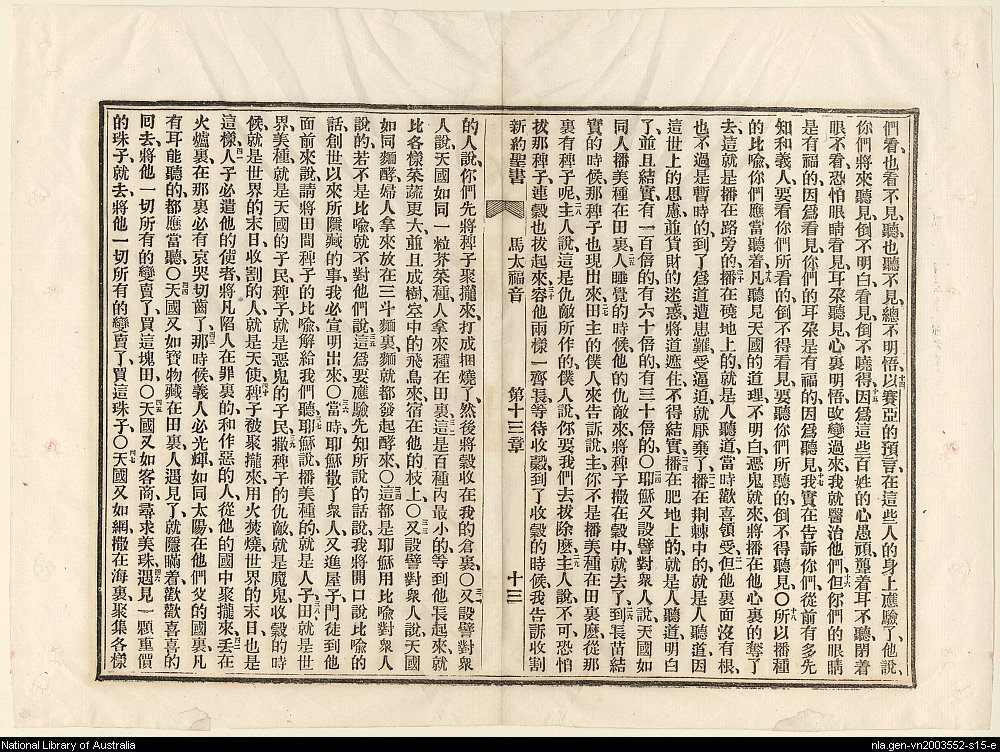 們看也看不見、聽也聽不見、總不明悟、十四以賽亞的預言、在這些人的身上應驗了、他說、
你們將來聽見、倒不明白、看見、倒不曉得、十五因爲這些百姓的心愚頑、聾着耳不聽、閉着
眼不看、恐怕眼睛看見、耳朶聽見、心裏明悟、攺變過來、我就醫治他們、十六但你們的眼睛
是有福的、因爲看見、你們的耳朶是有福的、因爲聽見、十七我實在告訴你們、從前有多先
知和義人、要看你們所看的、倒不得看見、要聽你們所聽的、倒不得聽見、○十八所以播種
的比喩、你們應當聽着、十九凡聽見天國的道理、不明白、惡鬼就來、將播在他心裏的奪了
去、這就是播在路旁的、二十播在磽地上的、就是人聽道、當時歡喜領受、二一但他裏面沒有根、
也不過是暫時的、到了爲道遭患難、受逼迫、就厭棄了、二二播在荆棘中的、就是人聽道、因
這世上的思慮、並貨財的迷惑、將道遮住、不得結實、二三播在肥地上的、就是人聽道、明白
了、並且結實、有一百倍的、有六十倍的、有三十倍的、○二四耶穌又設譬對衆人說、天國如
同人播美種在田裏、二五人睡覺的時候、他的仇敵來、將稗子撒在穀中、就去了、二六到長苗結
實的時候、那稗子也現出來、二七田主的僕人來告訴說、主、你不是播美種在田裏麼、從那
裏有稗子呢、二八主人說、這是仇敵所作的、僕人說、你要我們去拔除麼、二九主人說、不可、恐怕
拔那稗子、連穀也拔起來、三十容他兩樣一齊長、等待收穀、到了收穀的時候、我告訴收割
新約聖書 馬太福音 第十三章 十三
的人說、你們先將稗子聚攏來、打成捆燒了、然後將穀收在我的倉裏、○三一又設譬對衆
人說、天國如同一粒芥菜種、人拿來種在田裏、三二這是百種內最小的、等到他長起來、就
比各樣菜蔬更大、並且成樹、空中的飛鳥、來宿在他的枝上、○三三又設譬對衆人說、天國
如同麵酵、婦人拿來放在三斗麵裏、麵就都發起酵來、○三四這都是耶穌用比喩對衆人
說的、若不是比喩、就不對他們說、三五這爲要應驗先知所說的話、說、我將開口說比喩的
話、創世以來所隱藏的事、我必宣明出來、○三六當時耶穌散了衆人、又進屋子、門徒到他
面前來、說、請將田間稗子的比喩、解給我們聽、三七耶穌說、播美種的、就是人子、三八田就是世
界、美種、就是天國的子民、稗子、就是惡鬼的子民、三九撒稗子的仇敵、就是魔鬼、收穀的時
候、就是世界的末日、收割的人、就是天使、四十稗子被聚攏來、用火焚燒、世界的末日、也是
這樣、四一人子必遣他的使者、將凡陷人在罪裏的、和作惡的人、從他的國中聚攏來、四二丢在
火爐裏、在那裏必有哀哭切齒了、四三那時候義人必光輝如同太陽、在他們父的國裏、凡
有耳能聽的、都應當聽、○四四天國又如寶物藏在田裏、人遇見了、就隱瞞着、歡歡喜喜的
囘去、將他一切所有的變賣了、買這塊田、○四五天國又如客商尋求美珠、四六遇見一顆重價
的珠子、就去將他一切所有的變賣了、買這珠子、○四七天國又如網撒在海裏、聚集各樣
National Library of Australia
nla.gen-vn2003552-s15-e